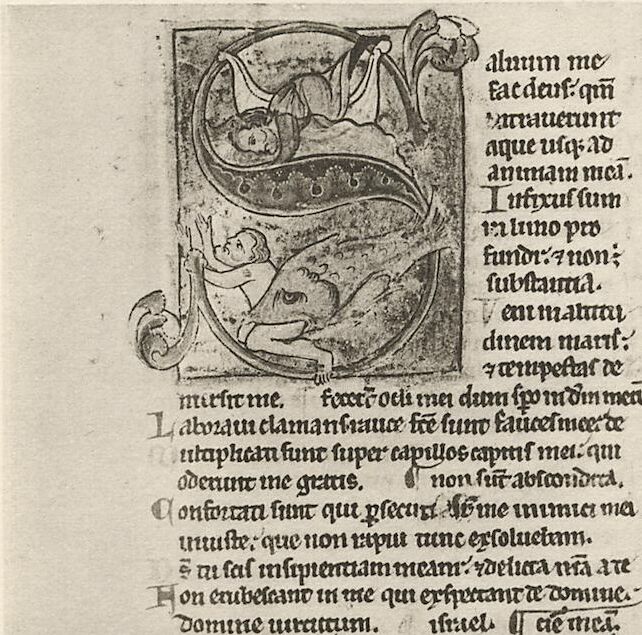 Saluum me
fac deus: qm̄
intrauerunt
aque usq; ad
animam meā.
Infixus sum
in limo pro
fundi: ⁊ non ē
substantia.
Veni in altitu
dinem maris:
⁊ tempestas de
mersit me. fecer̄t oculi mei dum spo in dm̄ meū
Laboraui clamans rauce fce sunt fauces mee: de
ultiplicati sunt super capillos capitis mei: qui
oderunt me gratis. non sūt abscondita.
Confortati sunt qui psecuti me inimici mei
iniuste: que non rapui tunc exsoluebam.
tu scis insipientiam meam: ⁊ delicta mā a te
Non erubescant in me qui exspectant te domine:
domine uirtutum. israel.